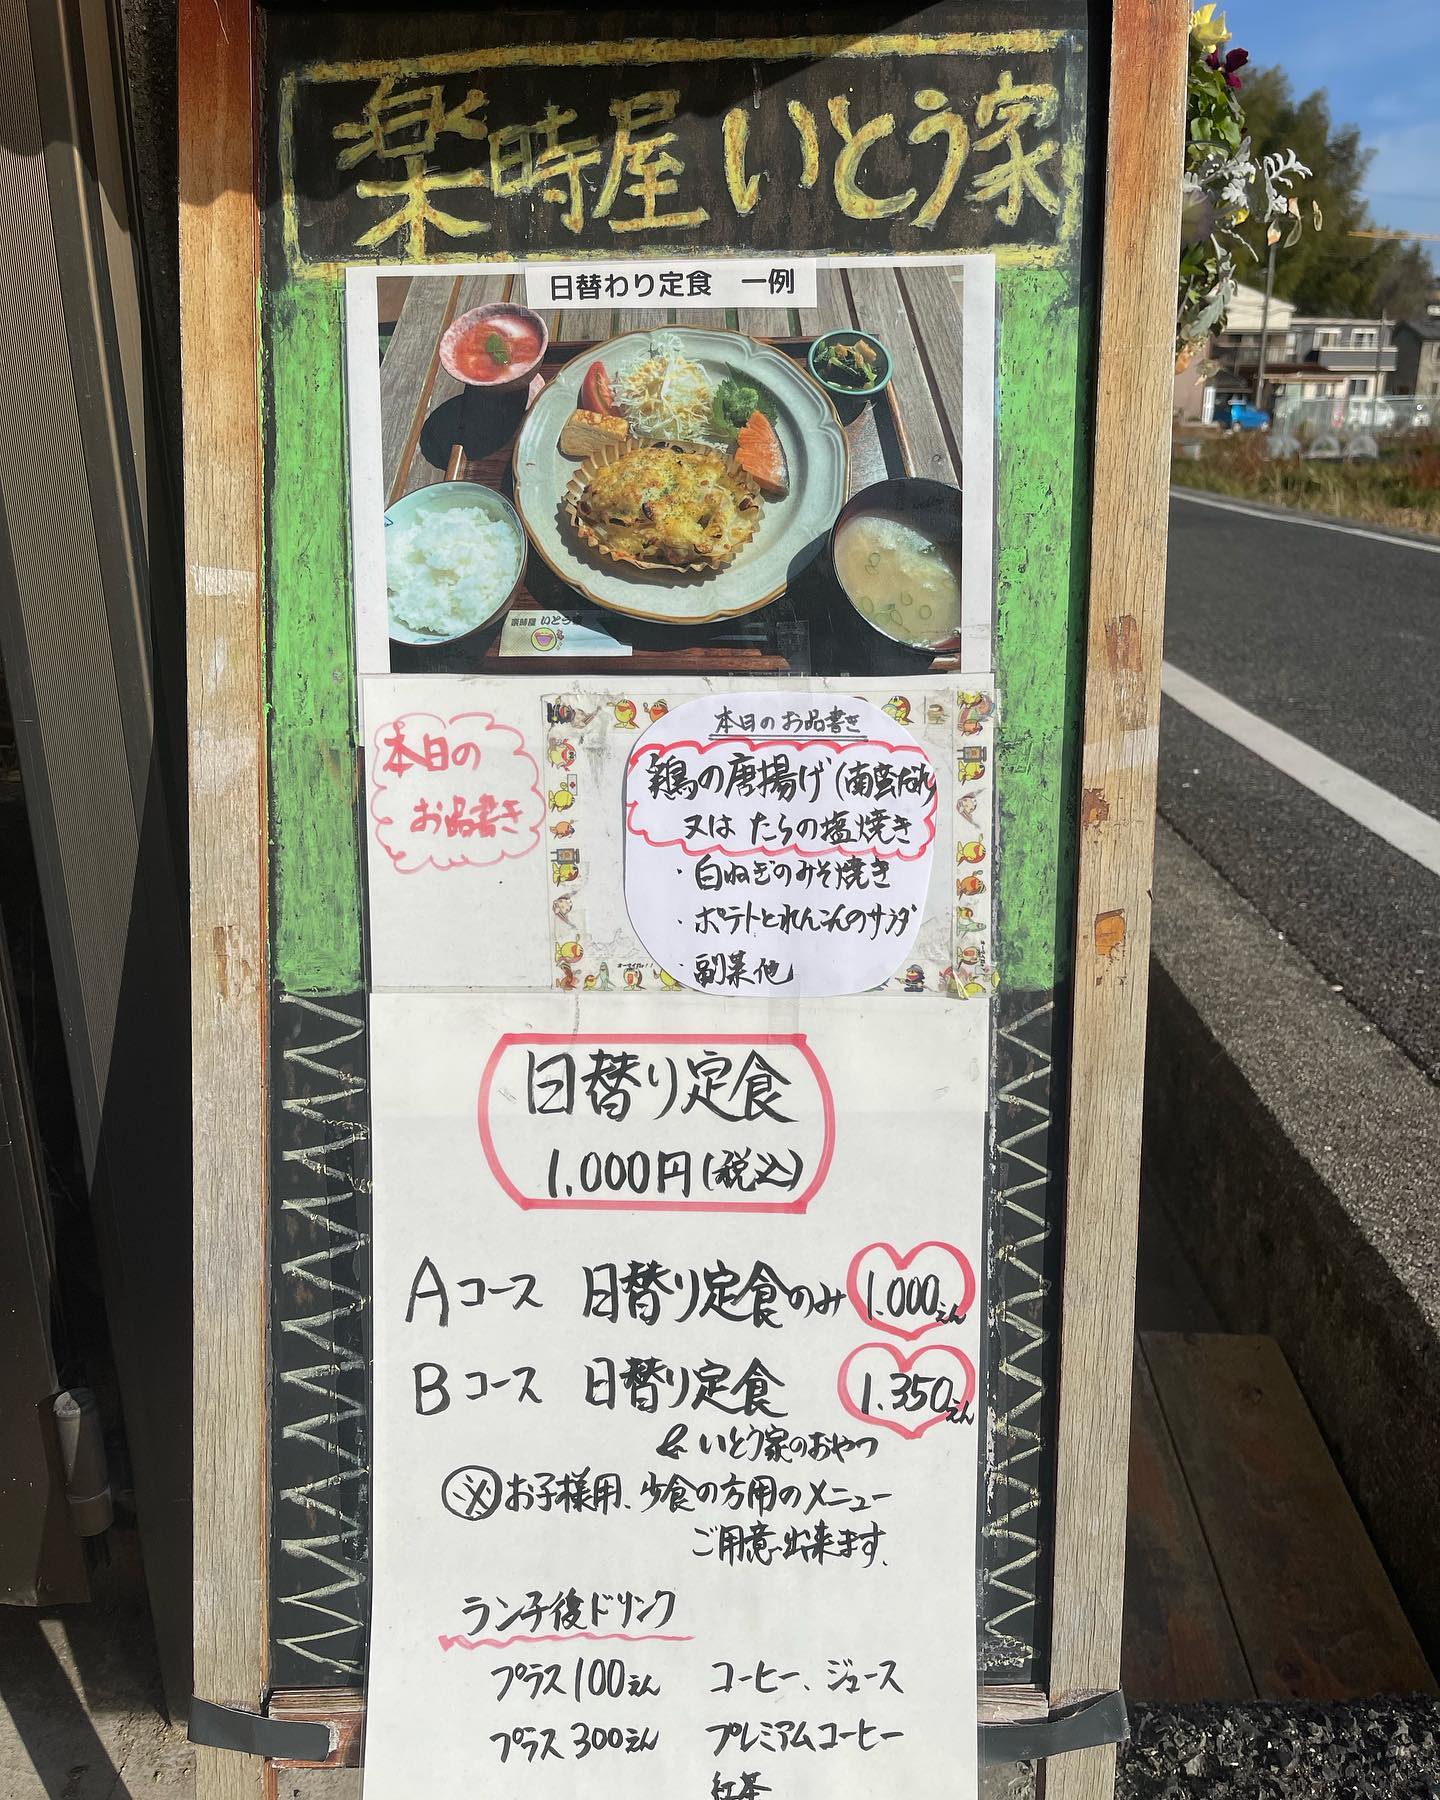 楽時屋 いとう家
日替わり定食 一例
楽時屋 いとう家
本日の
お品書き
本日のお品書き
鶏の唐揚げ(南蛮だれ)
又は たらの塩焼き
・白ねぎのみそ焼き
・ポテトとれんこんのサラダ
・副菜他
日替り定食
1.000円(税込)
Aコース 日替り定食のみ 1.000えん
Bコース 日替り定食 1.350えん
& いとう家のおやつ
※お子様用、少食の方用のメニュー
ご用意出来ます。
ランチ後ドリンク
プラス100えん コーヒー、ジュース
プラス300えん プレミアムコーヒー
紅茶